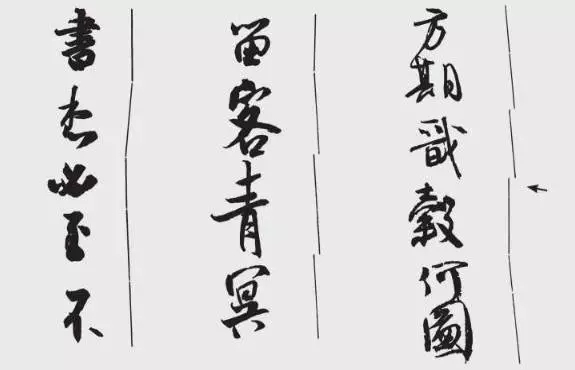 方期戩穀何圖
留客青冥
書想必至不